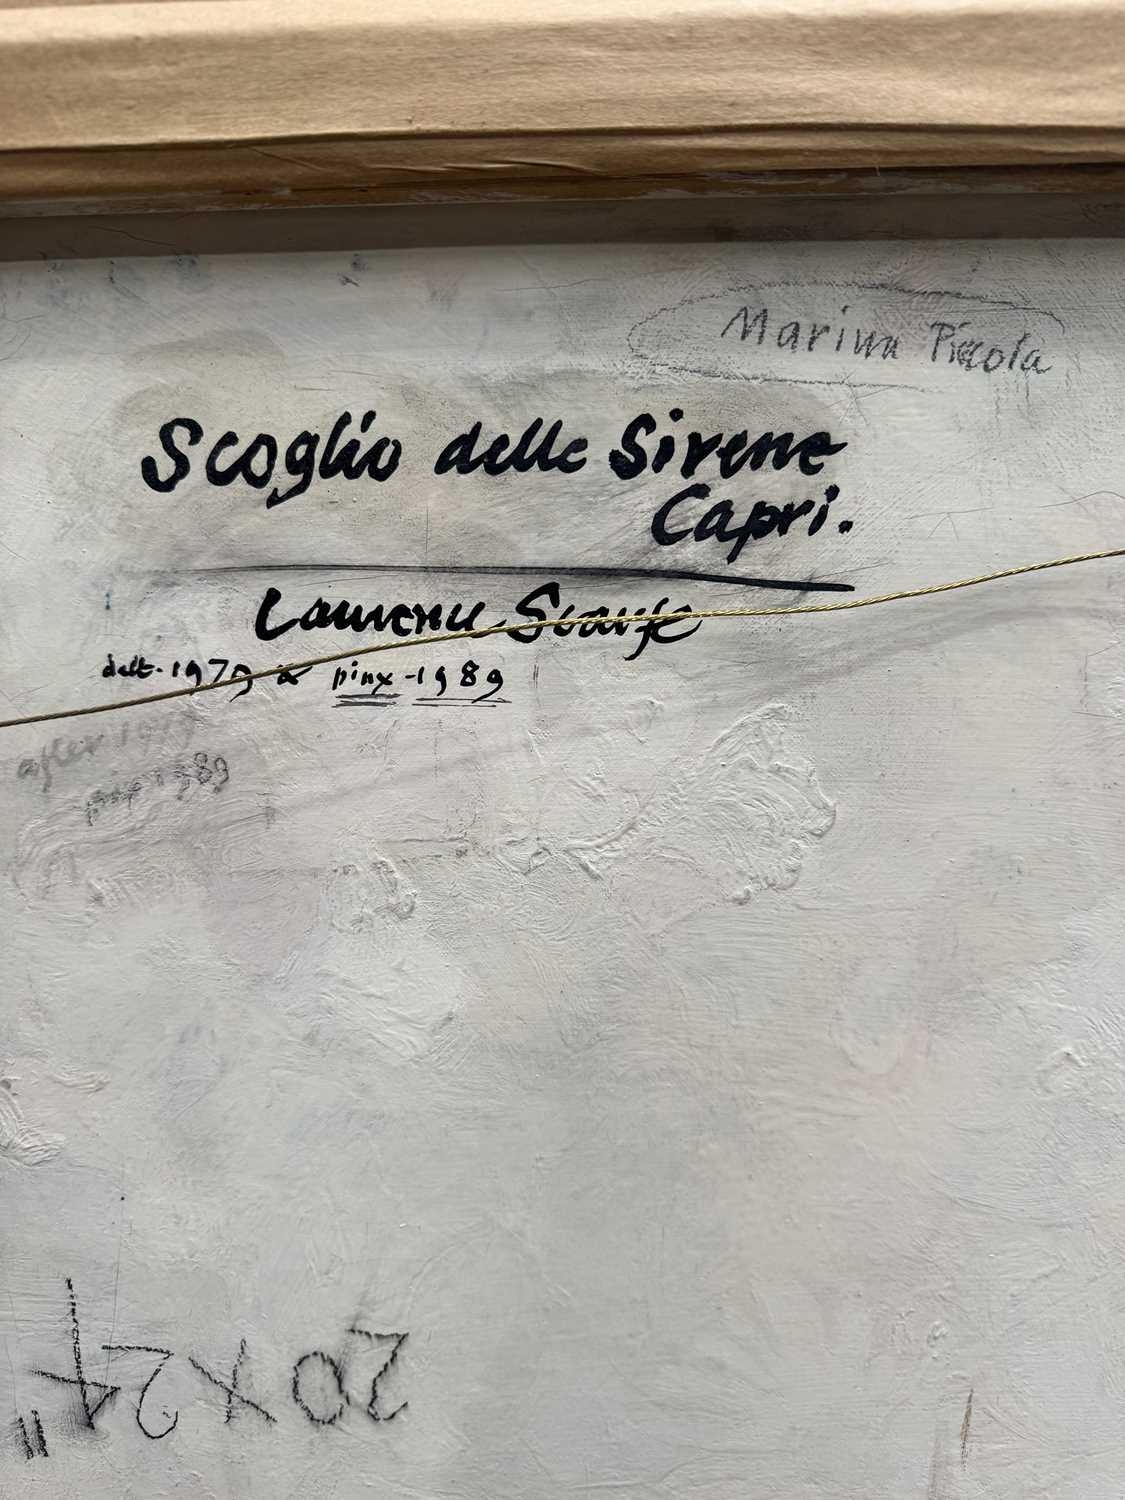 Marina Piccola
Scoglio delle Sirene
Capri.
Laurence Scarfe
delt-1979 & pinx-1989
after 1979
pinx 1989
20 X 24"